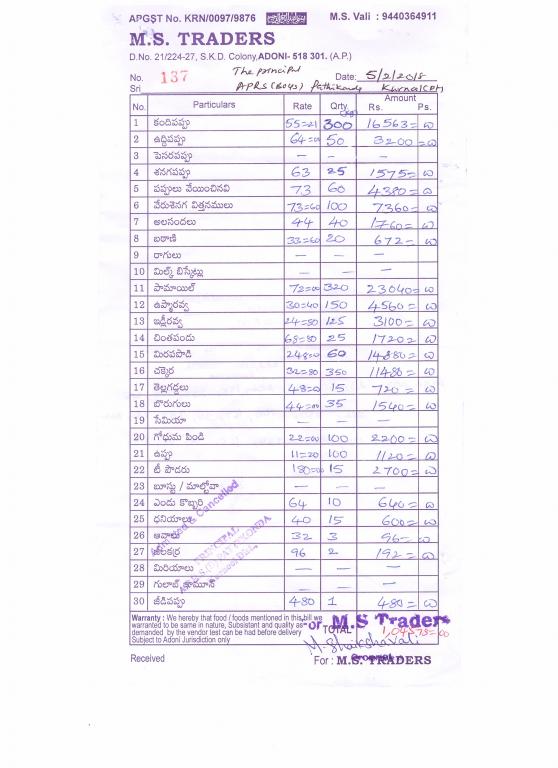 APGST No. KRN/0097/9876 M.S. Vali : 9440364911
M.S. TRADERS
D.No. 21/224-27, S.K.D. Colony, ADONI- 518 301. (A.P.)
No. 137 The principal Date: 5/2/2018
Sri APRS (Boys)
No. Particulars Rate Qrty. Amount
Rs. Ps.
1 కందిపప్పు 55=21 300 16563=00
2 ఉద్దిపప్పు 64=00 50 3200=00
3 పెసరపప్పు — — —
4 శనగపప్పు 63 25 1575=00
5 పప్పులు వేయించినవి 73 60 4380=00
6 వేరుశెనగ విత్తనములు 73=60 100 7360=00
7 అలసందలు 44 40 1760=00
8 బఠాణి 33=60 20 672=00
9 రాగులు — — —
10 మిల్క్ బిస్కేట్లు — — —
11 పామాయిల్ 72=00 320 23040=00
12 ఉప్మారవ్వ 30=40 150 4560=00
13 ఇడ్లీరవ్వ 24=80 125 3100=00
14 చింతపండు 68=80 25 1720=00
15 మిరపపొడి 248=00 60 14880=00
16 చక్కెర 32=80 350 11480=00
17 తెల్లగడ్డలు 48=00 15 720=00
18 బొరుగులు 44=00 35 1540=00
19 సేమియా — — —
20 గోధుమ పిండి 22=00 100 2200=00
21 ఉప్పు 11=20 100 1120=00
22 టీ పౌడరు 180=00 15 2700=00
23 బూస్టు / మాల్టోవా — — —
24 ఎండు కొబ్బరి 64 10 640=00
25 ధనియాలు 40 15 600=00
26 ఆవాలు 32 3 96=00
27 జీలకర్ర 96 2 192=00
28 మిరియాలు — — —
29 గులాబ్ జామూన్ — — —
30 జీడిపప్పు 480 1 480=00
Cancelled
PRINCIPAL
Warranty : We hereby that food / foods mentioned in this bill we
warranted to be same in nature, Subsistant and quality as
demanded by the vendor test can be had before delivery
Subject to Adoni Jurisdiction only
or M.S Traders
TOTAL 1,04,573=00
Received For : M.S. TRADERS